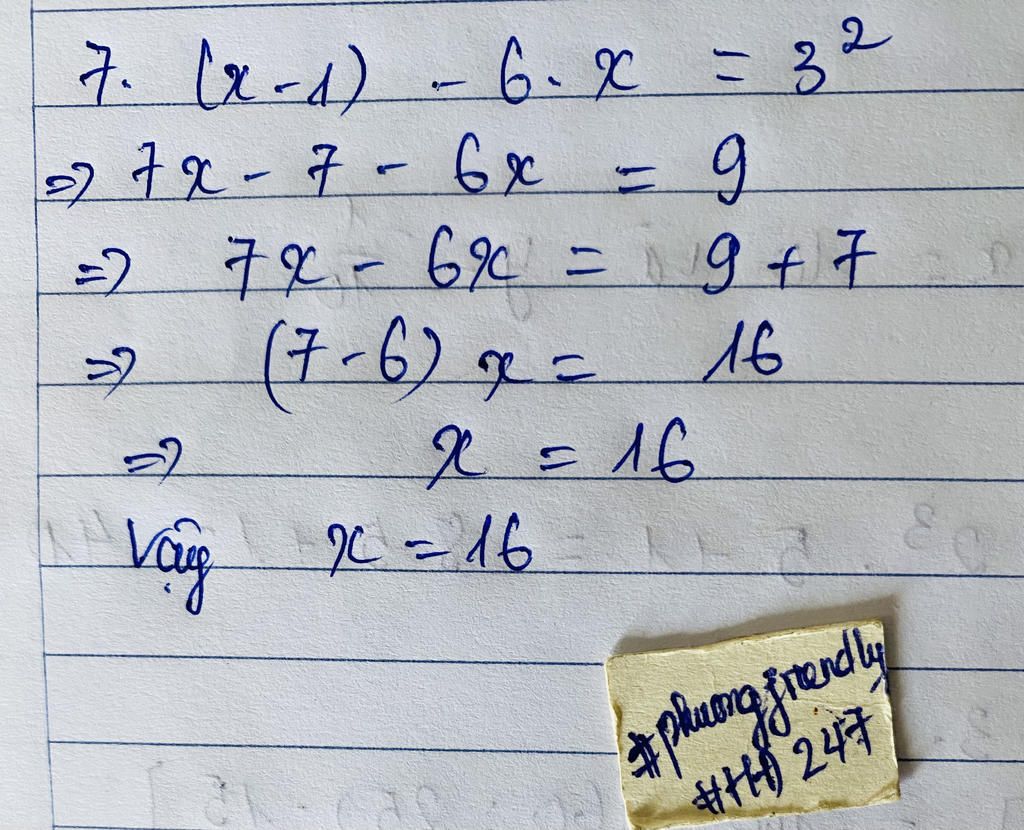 7. (x-1) - 6. x = 3²
=> 7x - 7 - 6x = 9
=> 7x - 6x = 9 + 7
=> (7-6) x = 16
=> x = 16
Vậy x = 16
#phuongfriendly
#HĐ 247